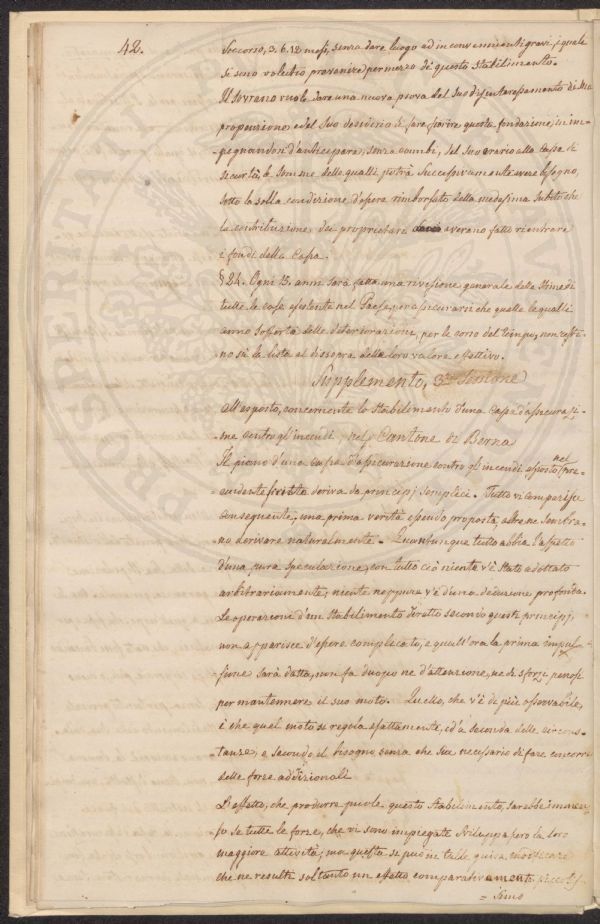 42.
Soccorso, 3. 6. 12 mesi, senza dare luogo ad inconvenienti gravi, i quali
si sono voluttio prevenire per mezzo di questo Stabilimento.
Il Sovrano vuole dare una nuova prova del Suo disinteressamento di Sua
propensione, e del Suo desiderio di fare fiorire questa fondazione, in im-
pegnandosi d'anticipare, senza cambi, del suo erario alla Cassa di
Sicurtà, le Somme delle qualli potrà Successivamente avere bisogno,
sotto la solla condizione d'essere rimborsato dalla medesima Subito che
la contribuzione dei proprietari averano fatti rientrare
i fondi della Cassa.
§ 24. Ogni 15. anni Sarà fatta una rivisione generale delle Stime di
tutte le case esistente nel Paese, per assicurarsi che quelle le qualli
anno Sofferto delle deteriorazioni, per lo corso del tempo, non resti-
no sù la lista al disopra della loro valore effettivo.
Supplemento, 3za Sezione
All'esposto, concernente lo Stabilimento d'una Cassa d'assecurazi-
one contro gl'incendi, nel Cantone di Berna
Il piano d'una cassa d'assicurazione contro gli incendi esposto nel pre-
cedente scritto deriva da principj semplici. Tutto vi comparisce
consequente, una prima verità essendo proposta, altre ne sembra-
no derivare naturalmente. Quantunque tutto abbia l'aspetto
d'una pura Speculazione, con tutto ciò niente v'è Stato adottato
arbitrariamente, niente neppure v'è d'una deduzione profonda.
Le operazioni d'un Stabilimento diretto secondo questi principj,
non apparisce d'essere complicato, e quell'ora la prima impul-
sione Sarà datta, non fa duopo ne d'attenzione, ne di sforzi penosi
per mantennere il suo moto. Quello, che v'è di più osservabile,
è che quel moto si regola esattamente, ed a seconda delle circons-
tanze, e secondo il bisogno, senza che sia necessario di fare concorre
delle forze addizionali
L'effetto, che produrre puole questo Stabilimento, sarebbe immen-
so se tutte le forze, che vi sono impiegate Sviluppassero la loro
maggiore attività; ma questa si può in talle guisa modificare
che ne resulti soltanto un effetto comparativamente piccolis-
= simo